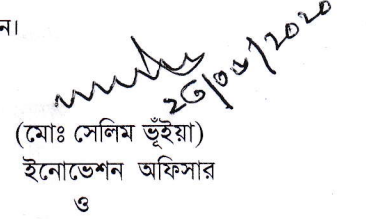 ন।
২৫/০৬/২০২০
(মোঃ সেলিম ভূঁইয়া)
ইনোভেশন অফিসার
ও